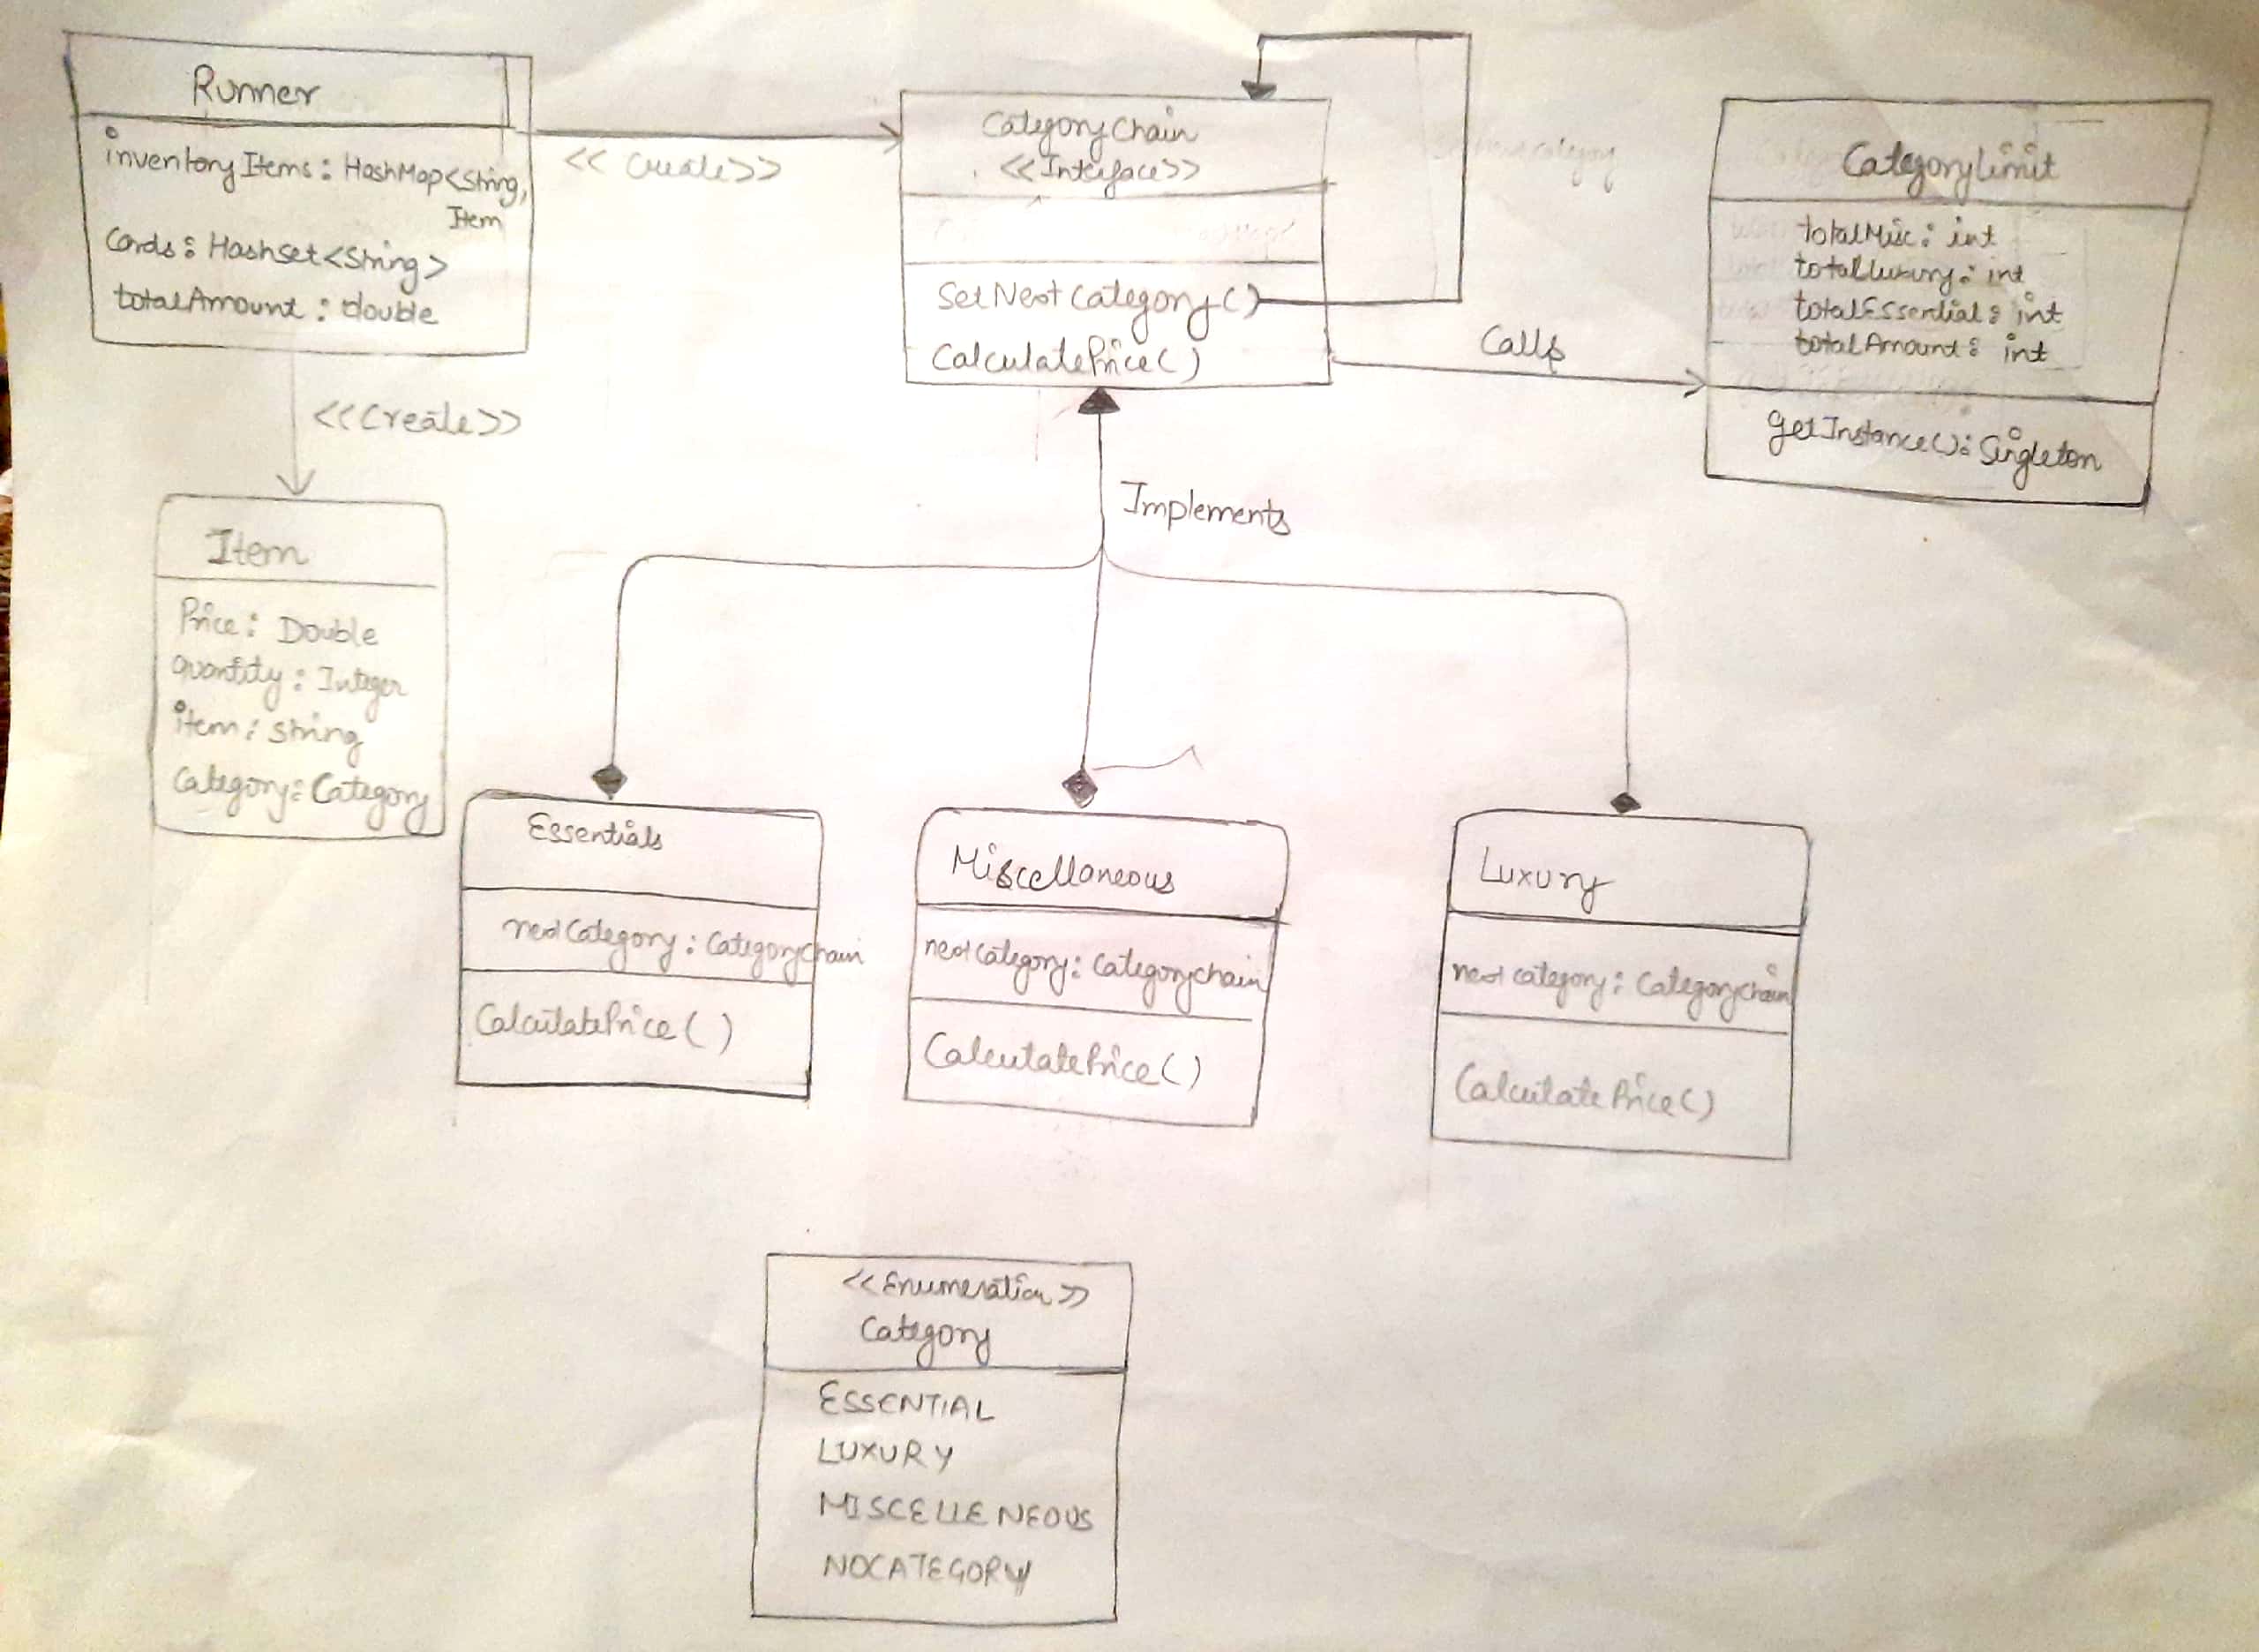 Runner
inventoryItems: HashMap<String,
Item
Cards: Hashset<String>
totalAmount: double
<<Create>>
CategoryChain
<<Interface>>
SetNextCategory()
CalculatePrice()
CategoryLimit
totalMisc: int
totalLuxury: int
totalEssential: int
totalAmount: int
getInstance(): Singleton
Calls
<<Create>>
Item
Price: Double
Quantity: Integer
item: String
Category: Category
Implements
Essentials
nextCategory: CategoryChain
CalculatePrice()
Miscellaneous
nextCategory: Categorychain
CalculatePrice()
Luxury
next category: Categorychain
Calculate Price()
<<Enumeration>>
Category
ESSENTIAL
LUXURY
MISCELLENEOUS
NOCATEGORY